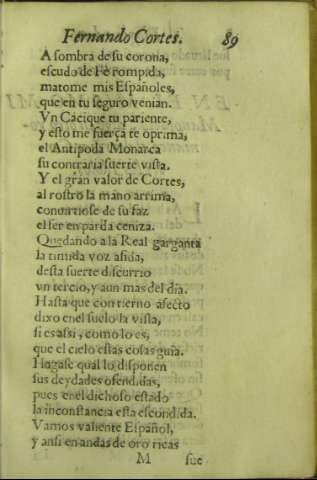 Fernando Cortes. 89
A sombra de su corona,
escudo de Fè rompida,
matome mis Españoles,
que en tu seguro venian.
Vn Cacique tu pariente,
y esto me fuerça te oprima,
el Antipoda Monarca
su contraria suerte vista.
Y el gran valor de Cortes,
al rostro la mano arrima,
conuirtiose de su faz
el ser en parda ceniza.
Quedando a la Real garganta
la timida voz asida,
desta suerte discurrio
vn tercio, y aun mas del dia.
Hasta que con tierno afecto
dixo en el suelo la vista,
si es assi, como lo es,
que el cielo estas cosas guia.
Hagase qual lo disponen
sus deydades ofendidas,
pues en el dichoso estado
la inconstancia esta escondida.
Vamos valiente Español,
y ansi en andas de oro ricas
M fue